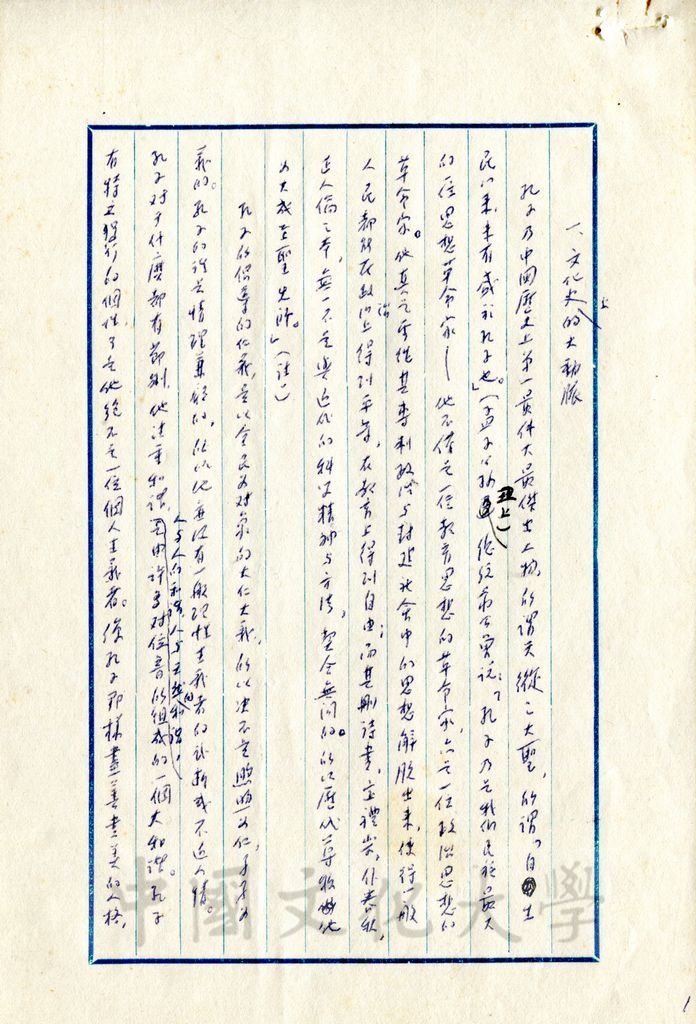 一、文化史上的大動脈
孔子乃中國歷史上第一最偉大最傑出人物,所謂天縱之大聖,所謂「自生
民以來,未有盛於孔子也。」(孟子公孫丑上)總統蔣公曾說:「孔子乃是我們民族最大
的一位思想革命家——他不僅是一位教育思想的革命家,亦是一位政治思想的
革命家。他真是要從其專制政治與封建社會中的思想解脫出來,使得一般
人民都能在政治上得到平等,在教育上得到自由;而其刪詩書,定禮樂,作春秋,
正人倫之本,無一不是與近代的科學精神與方法,契合無間的。所以歷代尊稱他
為大成至聖先師。」(註一)
孔子的倡導的仁義,是以全民為對象的大仁大義,所以決不是煦煦為仁,孑孑為
義的。孔子的說是情理兼顧的,所以他並沒有一般理性主義者的武斷或不近人情。
孔子對于什麼都有節制,他注重和諧,人與人的和諧,人與天的和諧,是由許多對位音所組成的一個大和諧。孔子
有特立獨行的個性,可是他絕不是一位個人主義者。像孔子那樣盡善盡美的人格,
中國文化大學
1